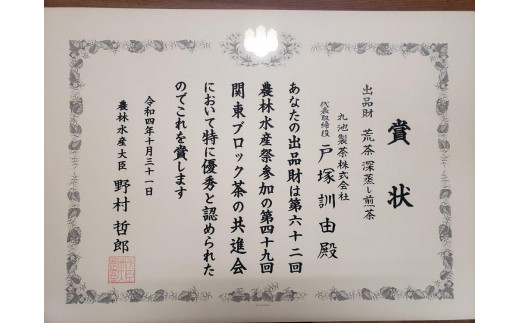 賞状
出品財 荒茶 深蒸し煎茶
丸池製茶株式会社
代表取締役 戸塚訓由殿
あなたの出品財は第六十二回
農林水産祭参加の第四十九回
関東ブロック茶の共進会
において特に優秀と認められた
のでこれを賞します
令和四年十月三十一日
農林水産大臣 野村哲郎